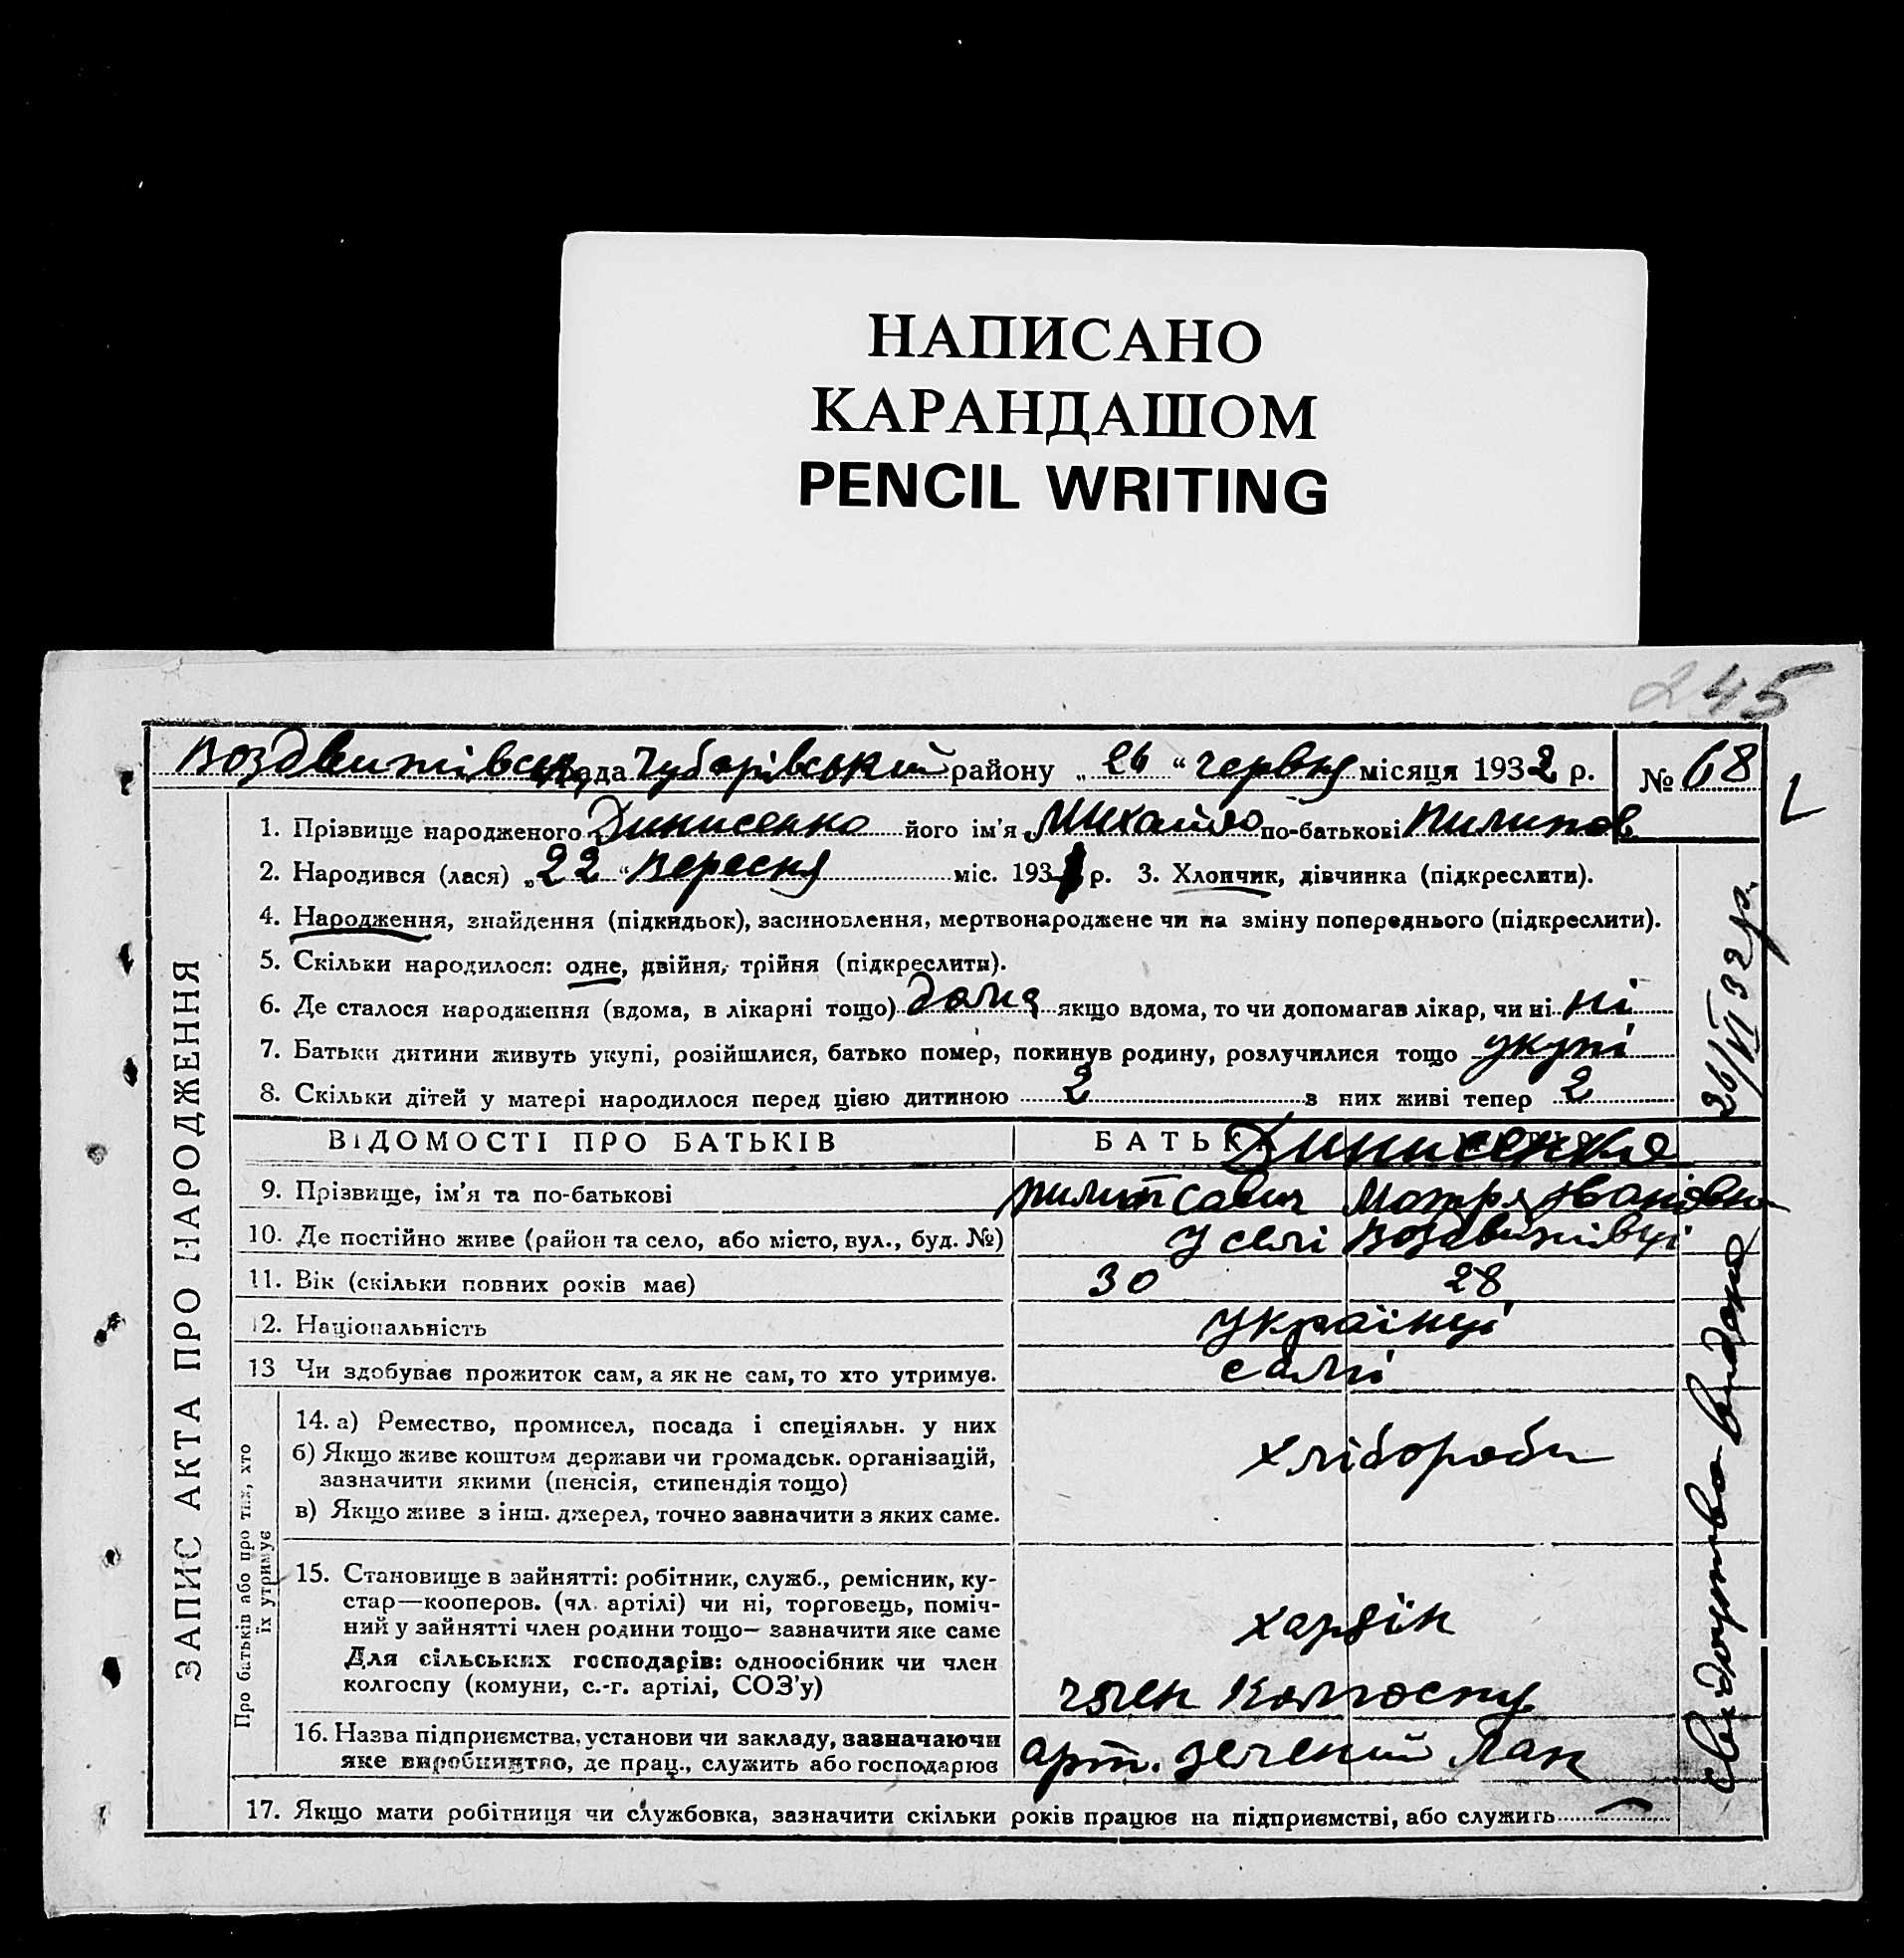 НАПИСАНО
КАРАНДАШОМ
PENCIL WRITING
245
Воздвижівськ рада Чубарівський району „ 26 “ червня місяця 1932 р. № 68
1. Прізвище народженого Динисенко його ім'я Михайло по-батькові Пилипов
2. Народився (лася) „ 22 “ Вересня міс. 193 р. 3. Хлопчик, дівчинка (підкреслити).
4. Народження, знайдення (підкидьок), засиновлення, мертвонароджене чи на зміну попереднього (підкреслити).
5. Скільки народилося: одне, двійня, трійня (підкреслити).
6. Де сталося народження (вдома, в лікарні тощо) дома якщо вдома, то чи допомагав лікар, чи ні ні
7. Батьки дитини живуть укупі, розійшлися, батько помер, покинув родину, розлучилися тощо укупі
8. Скільки дітей у матері народилося перед цією дитиною 2 з них живі тепер 2
ВІДОМОСТІ ПРО БАТЬКІВ БАТЬКА Динисенко
9. Прізвище, ім'я та по-батькові Пилип Савич Мотря Іванівна
10. Де постійно живе (район та село, або місто, вул., буд. №) У селі Воздвижівці
11. Вік (скільки повних років має) 30 28
12. Національність Українці
13 Чи здобуває прожиток сам, а як не сам, то хто утримує. самі
14. а) Ремество, промисел, посада і спеціяльн. у них
б) Якщо живе коштом держави чи громадськ. організацій,
зазначити якими (пенсія, стипендія тощо)
хлібороби
в) Якщо живе з інш. джерел, точно зазначити з яких саме.
15. Становище в зайнятті: робітник, служб., ремісник, ку-
стар—кооперов. (чл. артілі) чи ні, торговець, поміч-
ний у зайнятті член родини тощо— зазначити яке саме
Для сільських господарів: одноосібник чи член
колгоспу (комуни, с.-г. артілі, СОЗ'у)
член Колгоспу
16. Назва підприємства, установи чи закладу, зазначаючи
яке виробництво, де прац., служить або господарює
арт. Зелений Лан
17. Якщо мати робітниця чи службовка, зазначити скільки років працює на підприємстві, або служить
ЗАПИС АКТА ПРО НАРОДЖЕННЯ
Про батьків або про тих, хто
їх утримує
Свідоцтво видано 26/VI 32 р.